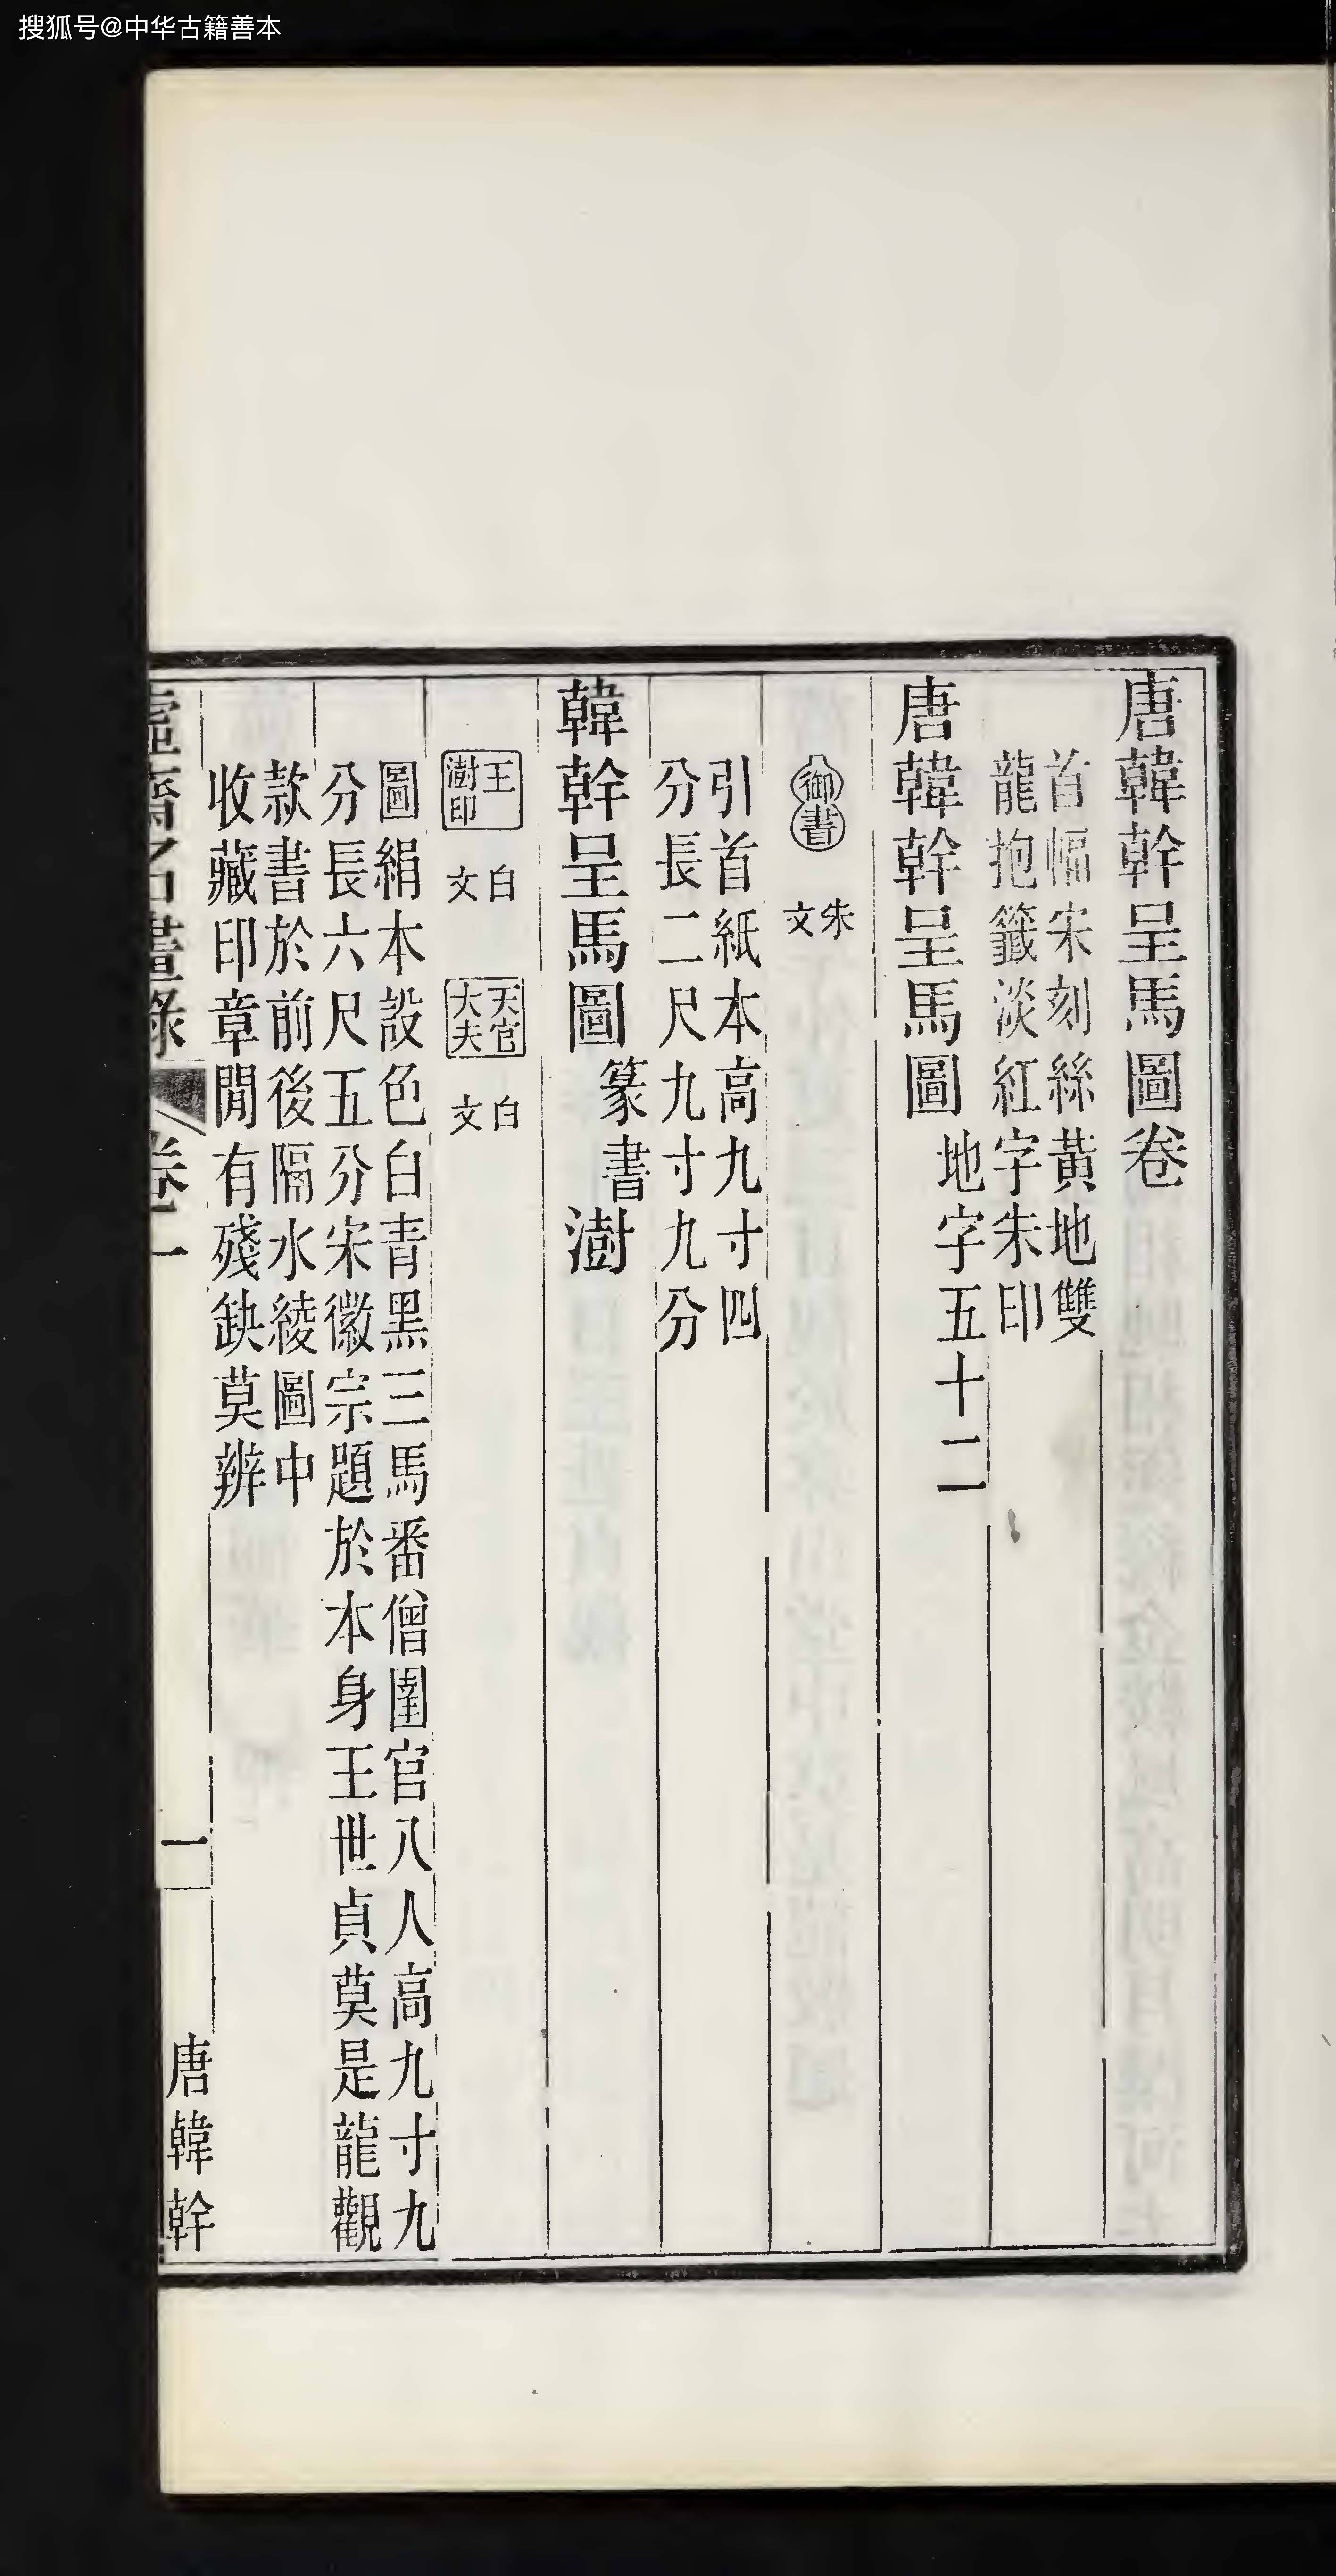 搜狐号@中华古籍善本
唐韓幹呈馬圖卷
首幅宋刻絲黃地雙
龍抱籤淡紅字朱印
唐韓幹呈馬圖地字五十二
御書
朱文
引首紙本高九寸四
分長二尺九寸九分
韓幹呈馬圖篆書澍
王澍印
白文
天官大夫
白文
圖絹本設色白青黑三馬番僧圉官八人高九寸九
分長六尺五分宋徽宗題於本身王世貞莫是龍觀
款書於前後隔水綾圖中
收藏印章閒有殘缺莫辨
虛齋名畫錄
卷一
一
唐韓幹